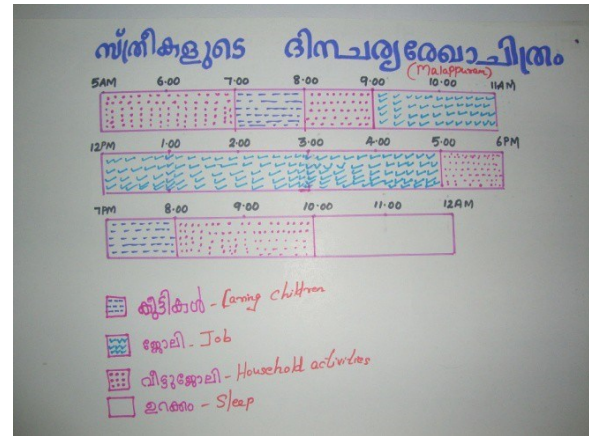 സ്ത്രീകളുടെ ദിനചര്യരേഖാചിത്രം
(Malappuram)
5AM 6.00 7.00 8.00 9.00 10.00 11AM
12PM 1.00 2.00 3.00 4.00 5.00 6PM
7PM 8.00 9.00 10.00 11.00 12AM
കുട്ടികൾ - Caring children
ജോലി - Job
വീട്ടുജോലി - Household activities
ഉറക്കം - Sleep